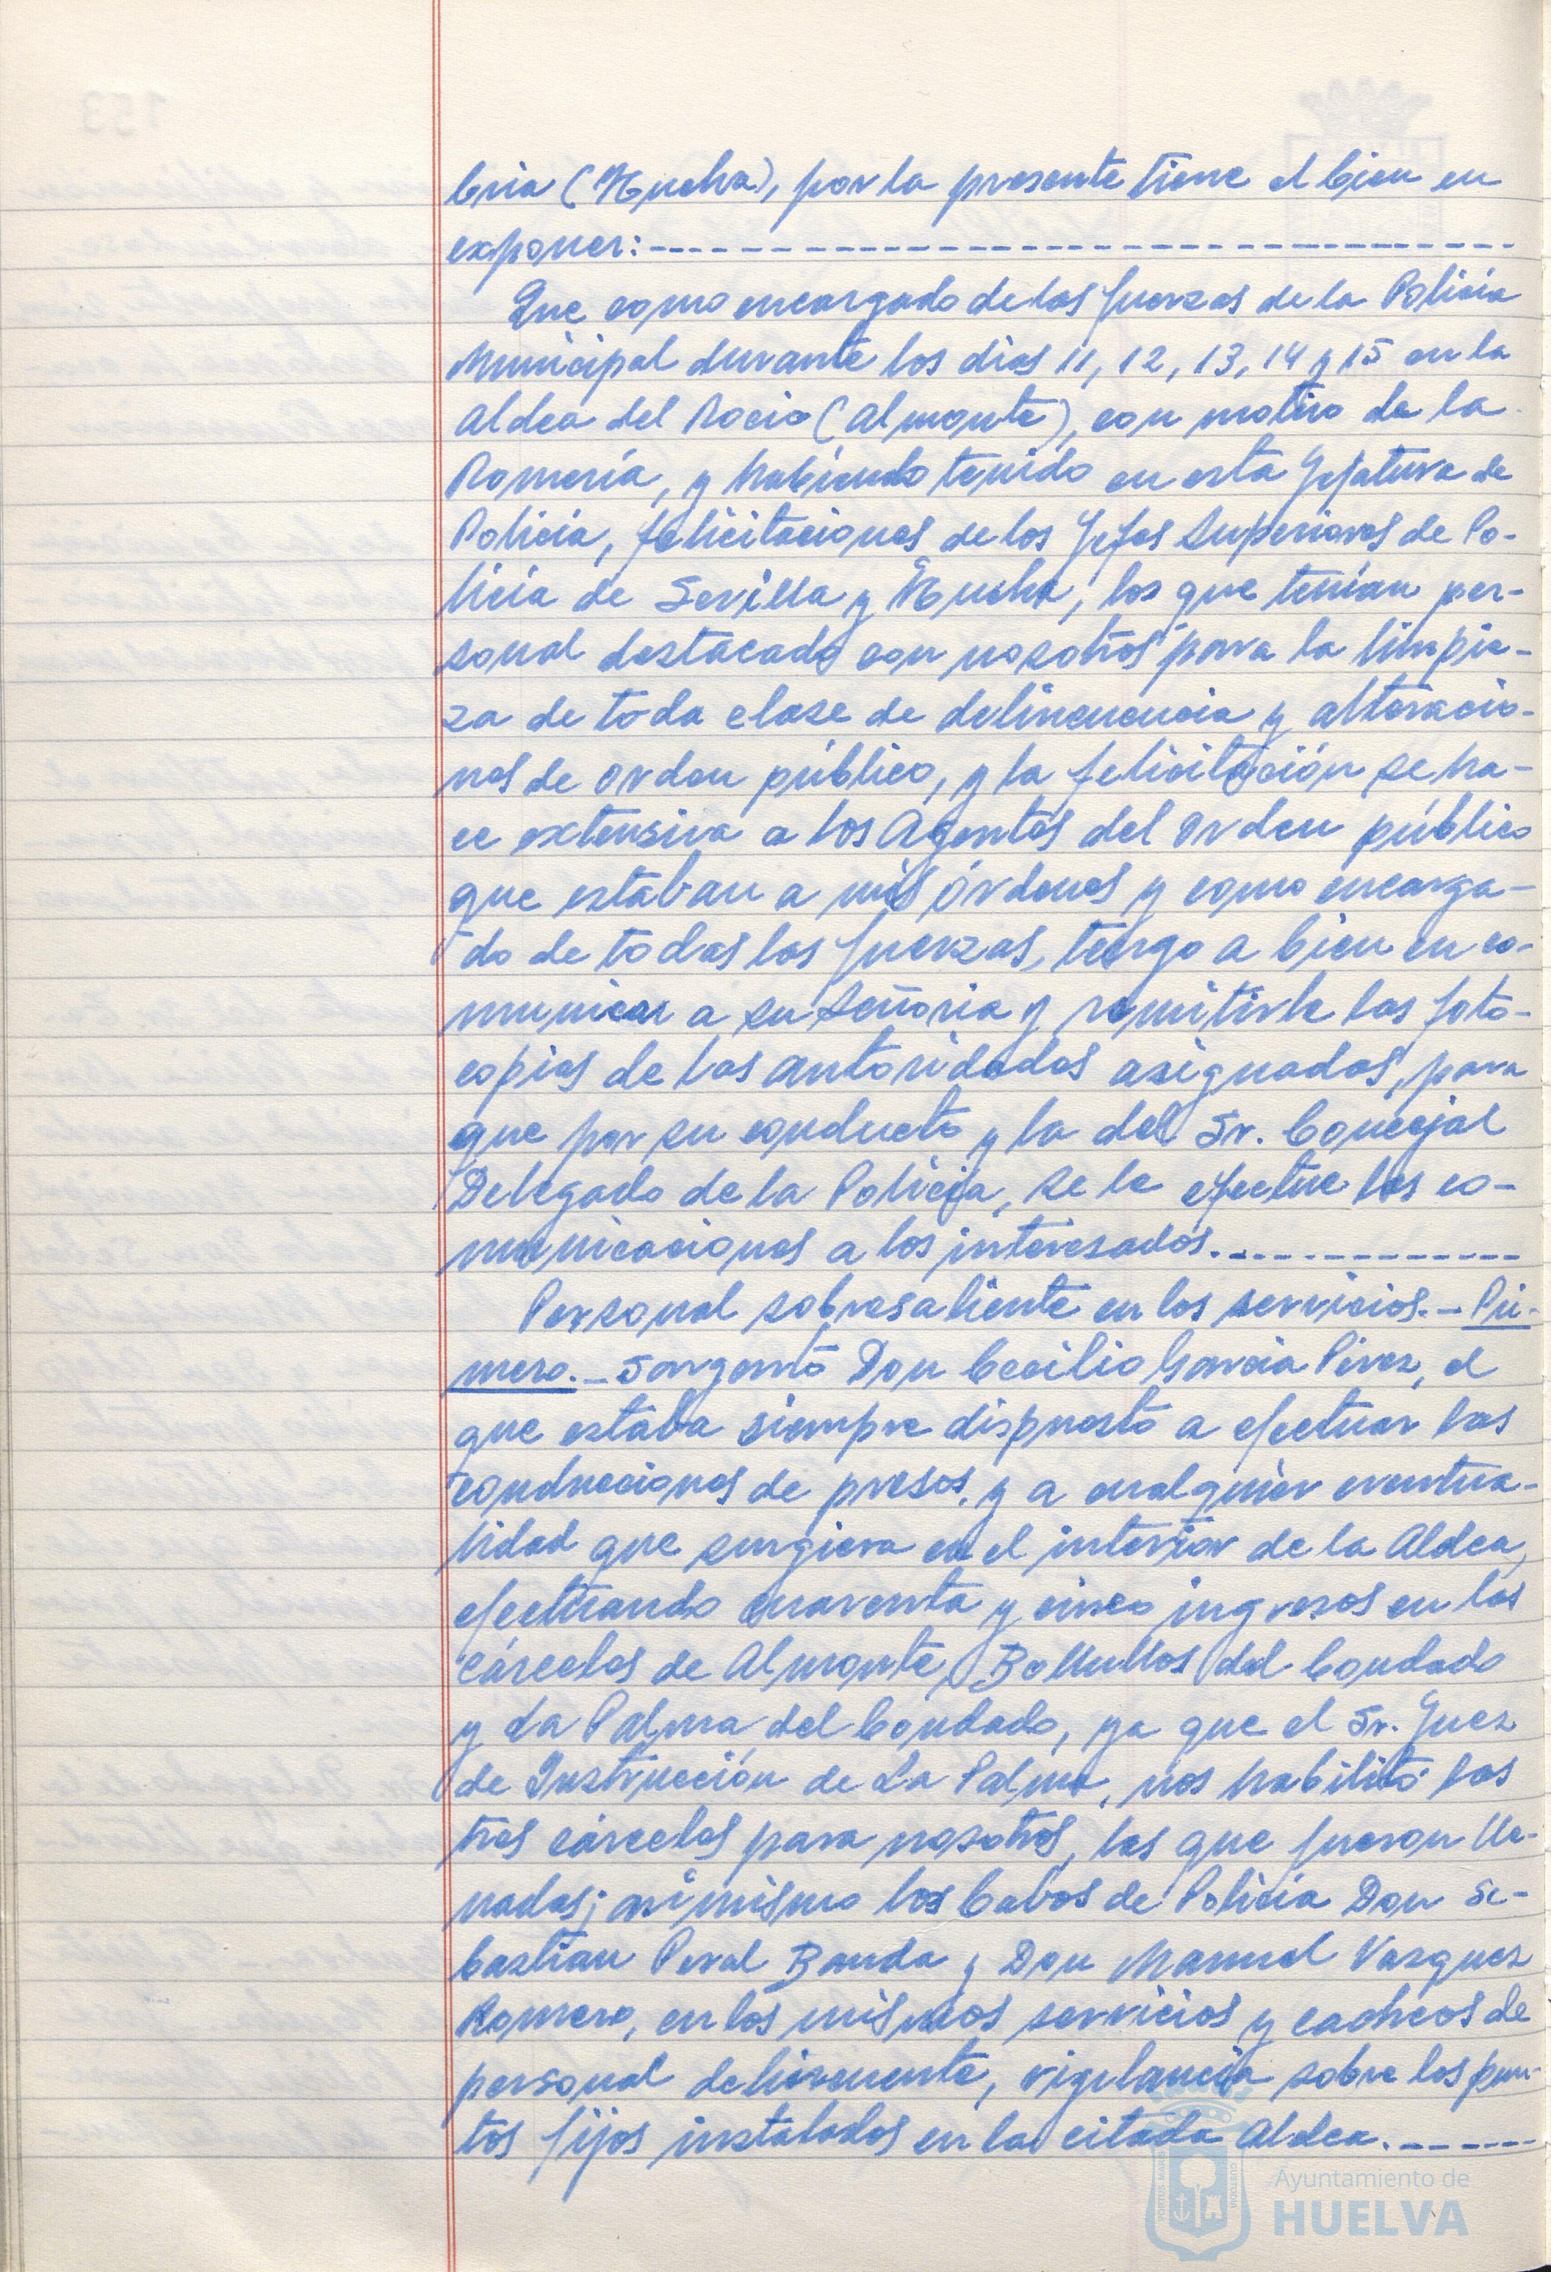 bria (Huelva), por la presente tiene el bien en
exponer:
Que como encargado de las fuerzas de la Policía
Municipal durante los dias 11, 12, 13, 14 y 15 en la
Aldea del Rocio (Almonte), con motivo de la
Romería, y habiendo tenido en esta Jefatura de
Policía, felicitaciones de los Jefes Superiores de Po-
licía de Sevilla y Huelva, los que tenían per-
sonal destacado con nosotros para la limpie-
za de toda clase de delincuencia y alteracio-
nes de orden público, y la felicitación se ha-
ce extensiva a los Agentes del orden público
que estaban a mis órdenes y como encarga-
do de todas las fuerzas, tengo a bien en co-
municar a su Señoria y remitirle las foto-
copias de las autoridades asignadas, para
que por su conducto y la del Sr. Concejal
Delegado de la Policía, se le efectue las co-
municaciones a los interesados.
Personal sobresaliente en los servicios.- Pri-
mero.- Sargento Don Cecilio Garcia Pérez, el
que estaba siempre dispuesto a efectuar las
conducciones de presos, y a cualquier eventua-
lidad que surgiera en el interior de la Aldea,
efectuando cuarenta y cinco ingresos en las
cárceles de Almonte, Bollullos del Condado
y La Palma del Condado, ya que el Sr. Juez
de Instrucción de La Palma, nos habilitó las
tres cárceles para nosotros, las que fueron lle-
nadas; asimismo los Cabos de Policía Don Se-
bastian Peral Banda y Don Manuel Vazquez
Romero, en los mismos servicios y cacheos de
personal delincuente, vigilancia sobre los pun-
tos fijos instalados en la citada Aldea.
Ayuntamiento de
HUELVA